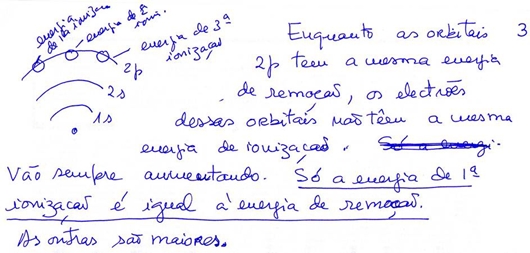 energia de 1ª ionização
energia de 2ª ioni.
energia de 3ª ionização
2p
2s
1s
3
Enquanto as orbitais
2p tem a mesma energia
de remoção, os electrões
dessas orbitais não têm a mesma
energia de ionização. Só a energi.
Vão sempre aumentando. Só a energia de 1ª
ionização é igual à energia de remoção.
As outras são maiores.